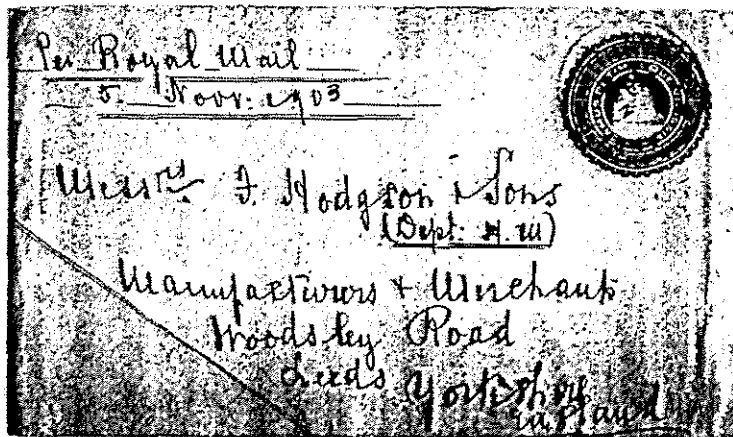 Per Royal Mail
5. Novr. 1903
Messrs F. Hodgson & Sons
(Dept: H. M)
Manufacturers & Merchants
Woodsley Road
Leeds Yorkshire
England